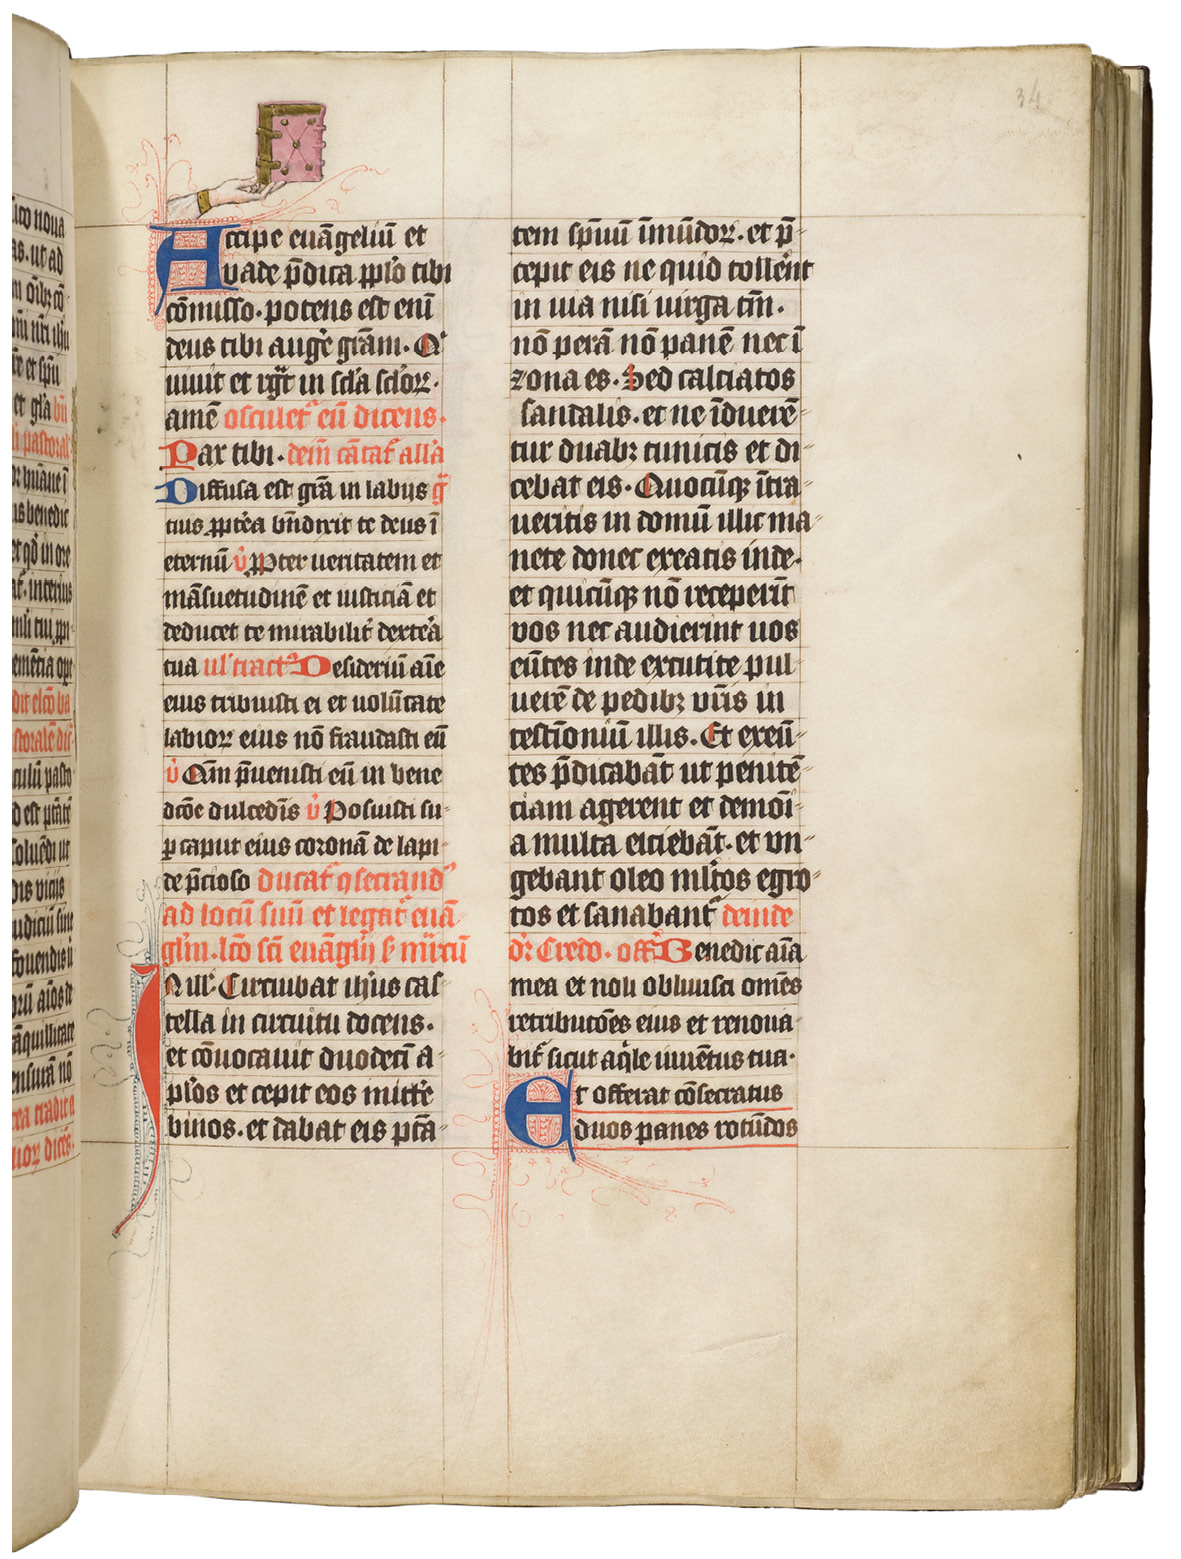 34
Accipe euāgeliū et
vade p̄dica pplo tibi
cōmisso. potens est enī
deus tibi augere grām. Qͥ
uiuit et rgͣt in scl'a scl'oꝝ.
amē osculetᷣ eū dicens.
Pax tibi. dein̄ cātatᷣ all'a
Diffusa est grā in labijs
tuis ꝓpterea bn̄dixit te deus ī
eternū v̓ Ꝓpter ueritatem et
māsuetudinē et iusticiā et
deducet te mirabilit̓ dextera
tua ul' tractᷣ Desideriū aīe
eius tribuisti ei et volūtate
labioꝝ eius nō fraudasti eū
v̓ Qm̄ p̄uenisti eū in bene
dcōe dulcedīs v̓ Posuisti su-
ꝑ caput eius coronā de lapi-
de p̄cioso Ducatᷣ ꝯsecrandᷣ
ad locū suū et legatᷣ euā
gliū. lcō scī euāglij s̄ mr̄cū
In ill' Circuibat ihūs cas-
tella in circuitu docens.
et cōuocauit duodecī a-
pl'os et cepit eos mitte̓
binos. et dabat eis ptā-
tem spūū īmūdoꝝ. et p̄-
cepit eis ne quid tollerīt
in uia nisi uirga tm̄.
nō perā nō panē nec ī
zona es. Sed calciatos
sandalis. et ne īduerē-
tur duabꝫ tunicis et di-
cebat eis. Quocūqꝫ ītra-
ueritis in domū illic ma-
nete donec exeatis inde.
et quicūqꝫ nō receperīt
vos nec audierint uos
eūtes inde excutite pul-
uerē de pedibꝫ vr̄is in
testīoniū illis. Et exeū-
tes p̄dicabāt ut penitē-
ciam agerent et demōi-
a multa eiciebāt. et vn-
gebant oleo ml'tos egro-
tos et sanabantᷣ deinde
dr̄ Credo. offᷣ Benedic aīa
mea et noli obliuisci omēs
retribucōes eius et renoua-
bitᷣ sicut aqͥle iuuētus tua.
Et offerat cōsecratus
duos panes rotūdos